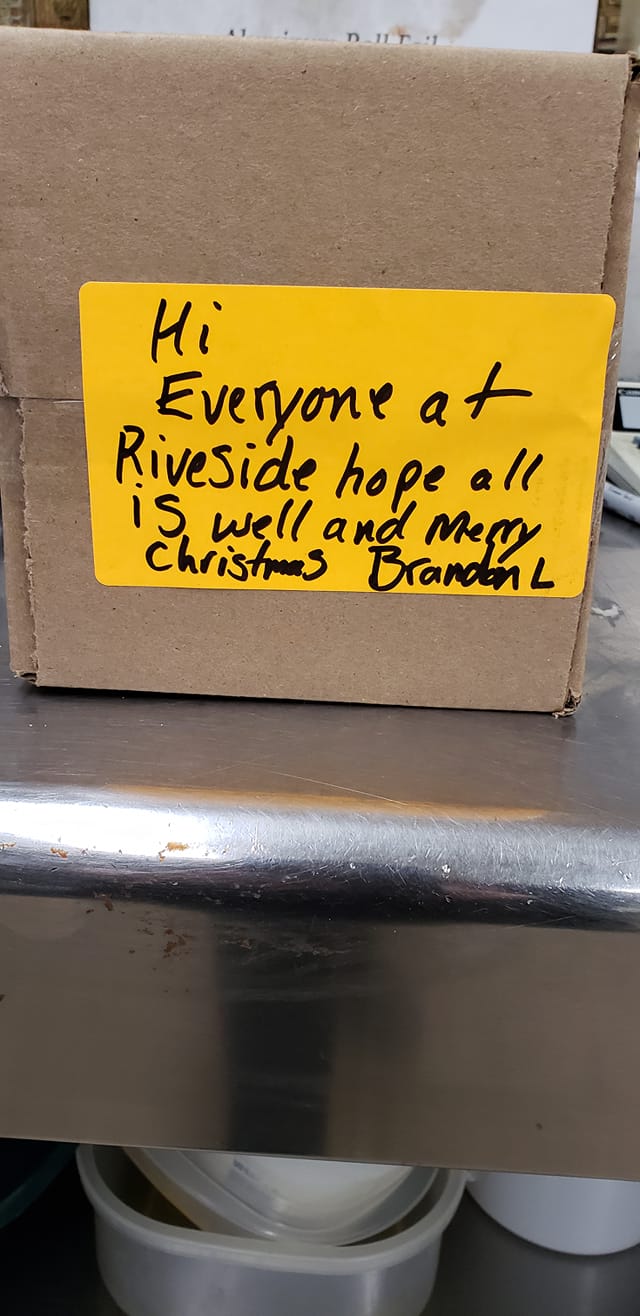 Aluminum Roll Foil
Hi
Everyone at
Riveside hope all
is well and Merry
Christmas Brandon L